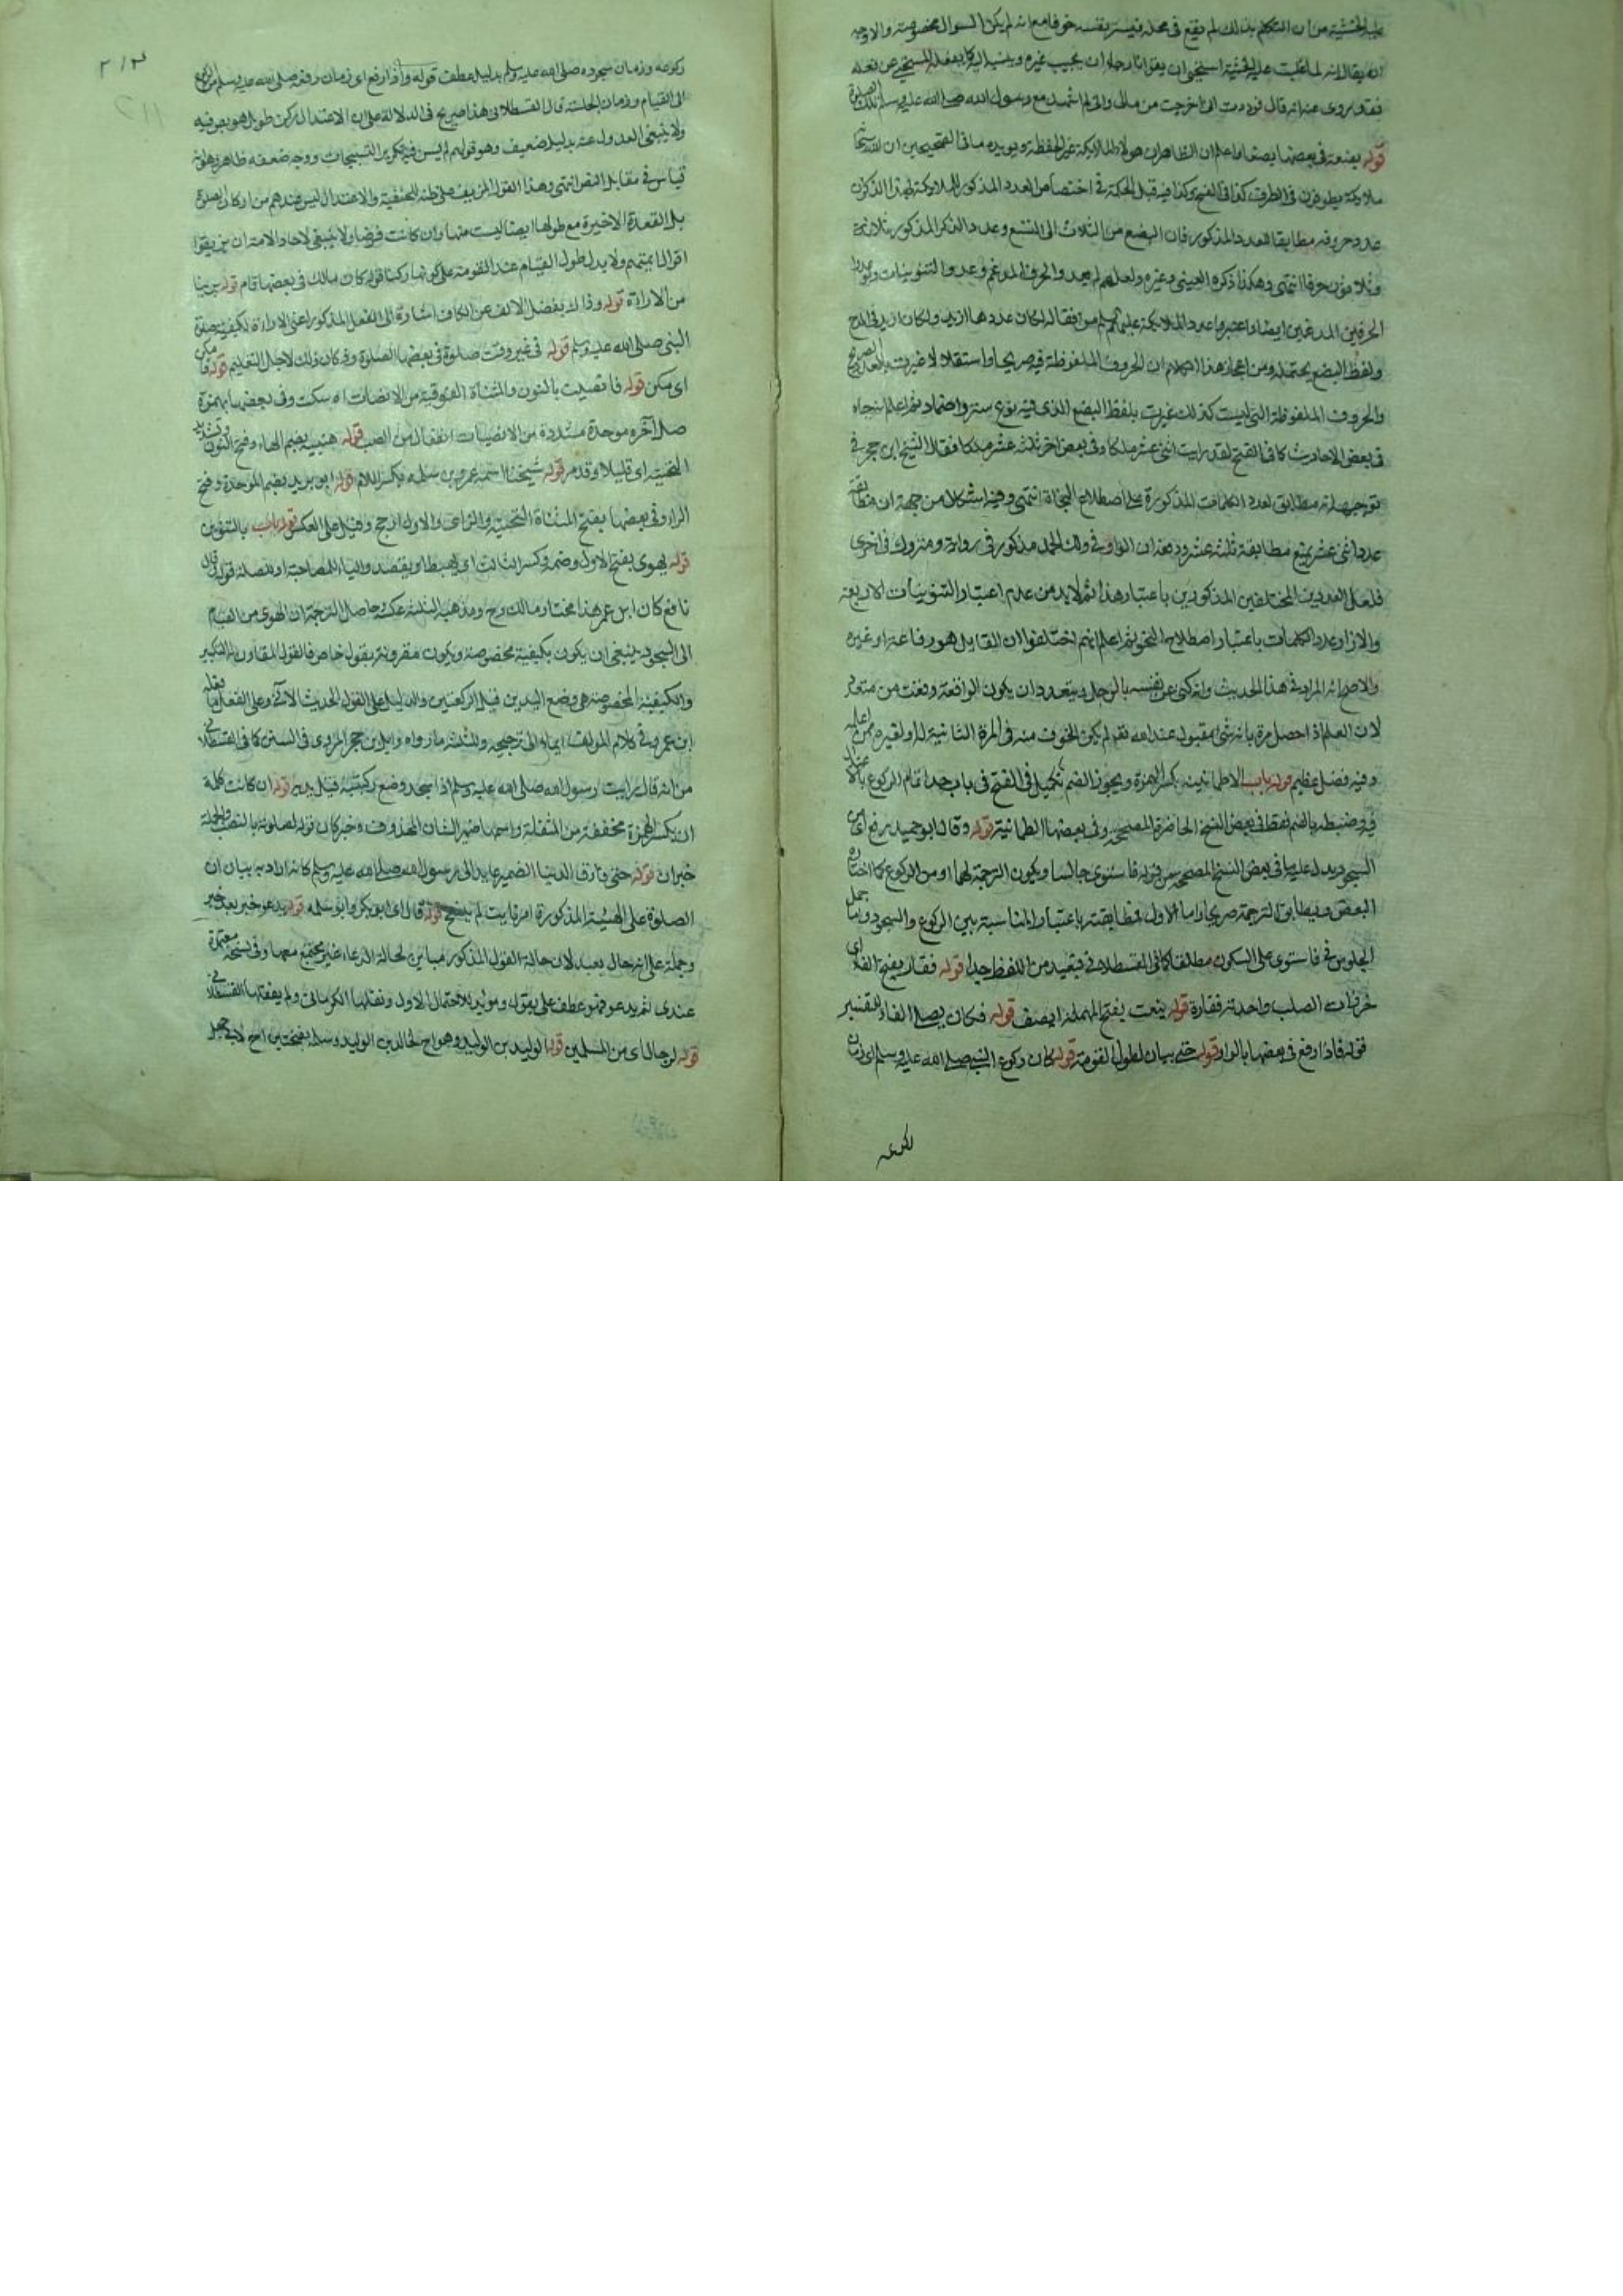 عليه الخشية من ان التكلم بذلك لم يقع في محله فيستر بنفسه خوفا مع انه لم يكن السوال مخصوصته والاوجه
ان يقال انه لما غلبت عليه الخشية استحيى ان يقول انا رجاء ان يجيب غيره
فقد روى عنه انه قال فوددت انى اخرجت من مالى وانى لم اشهد مع رسول الله صلى الله عليه وسلم تلك الصلوة
قوله بضعة في بعضها بضعا واعلم ان الظاهر ان هولاء الملائكة غير الحفظة ويويده ما فى الصحيحين ان لله
ملائكة يطوفون فى الطرق كذا فى الفتح وكذا فيه قيل الحكمة فى اختصاص العدد المذكور للملائكة بهذا الذكر ان
عدد حروفه مطابقا للعدد المذكور فان البضع من الثلاث الى التسع وعدد الذكر المذكور ثلاثة
وثلاثون حرفا انتهى وهكذا ذكره العينى وغيره ولعلهم لم يعدوا الحرف المدغم وعدوا التنوينات ولو عدوا
الحرفين المدغمين ايضا واعتبروا عدد الملائكة عليهم السلام من فقاله لكان عددها ازيد ولكان ازيد فى المدح
ولفظ البضع يحتمله ومن اعجاز هذا الكلام ان الحروف الملفوظة فيه صريحا واستقلالا عبرت بالعدد الصريح
والحروف الملفوظة التى ليست كذلك عبرت بلفظ البضع الذى فيه نوع ستر واضمار ثم اعلم انه جاء
فى بعض الاحاديث كما فى الفتح لقد رايت اثنى عشر ملكا وفى بعض اخر ثلثة عشر ملكا فقال الشيخ ابن حجر فى
توجيهه انه مطابق لعدد الكلمات المذكورة على اصطلاح النحاة انتهى وفيه اشكال من جهة ان مطابقة
عدد اثنى عشر يمنع مطابقة ثلثة عشر ودفعه ان الواو فى ولك الحمد مذكور فى رواية ومتروك فى اخرى
فلعل العددين المختلفين المذكورين باعتبار هذا ثم لا بد من عدم اعتبار التنوينات الاربعة
والا زاد عدد الكلمات باعتبار اصطلاح النحو ثم اعلم انهم اختلفوا ان القايل هو رفاعة او غيره
والاصح انه المراد فى هذا الحديث وانه كنى عن نفسه بالرجل ويتعدد ان يكون الواقعة وقعت من متعدد
لان العلم اذا حصل مرة بانه شئ مقبول عند الله تعالى لم يكن الخوف منه فى المرة الثانية له او لغيره
وفيه فضل عظيم قوله باب الاطمانينه بكسر الهمزة ويجوز الضم كما قيل فى الفتح فى باب حد اتمام الركوع
وضبطه بالضم فقط فى بعض النسخ الحاضرة المصححة وفى بعضها الطمانية قوله وقال ابو حميد رفع اى من
السجود يدل عليه ما فى بعض النسخ المصححة من قوله فاستوى جالسا ويكون الترجمة لهما او من الركوع كما اختاره
البعض ويطابق الترجمة صريحا واما الاول فمطابقته باعتبار المناسبة بين الركوع والسجود واما حمل
الجلوس فى فاستوى على السكون مطلقا كما فى القسطلانى فبعيد من اللفظ جدا قوله فقار بفتح الفاء اى
خرزات الصلب واحدته فقارة قوله ينعت بفتح المهملة اى يصف قوله فكان يصلى الفاء للتفسير
قوله فاذا رفع فى بعضها بالواو قوله حتى بيان لطول القومة قوله كان ركوع النبى صلى الله عليه وسلم اى زمان
ركوعه
٢١٢
ركوعه وزمان سجوده صلى الله عليه وسلم بدليل عطف قوله واذا رفع اى زمان رفعه صلى الله عليه وسلم من الركوع
الى القيام وزمان الجلسة قال القسطلانى هذا صريح فى الدلالة على ان الاعتدال ركن طويل هو نص فيه
ولا ينبغى العدول عنه بدليل ضعيف وهو قولهم لم يسن فيه تكرير التسبيحات ووجه ضعفه ظاهر وهو انه
قياس فى مقابلة النص انتهى وهذا القول المزيف على ظنه للحنفية والاعتدال ليس عندهم من اركان الصلوة
بل القعدة الاخيرة مع طولها ايضا ليست منها وان كانت فرضا ولا ينبغى لاحاد الامة ان يزيفوا
اقوال ايمتهم ولا يدل طول القيام عند القومة على كونها ركنا قوله كان مالك فى بعضها قام قوله يرينا
من الاراءة قوله وذاك بفصل الالف عن الكاف اشارة الى الفعل المذكور اعنى الاراءة لكيفية صلوة
النبى صلى الله عليه وسلم قوله فى غير وقت صلوة فى بعضها الصلوة وقد كان ذلك لاجل التعليم قوله فامكن
اى مكن قوله فانصبت بالنون والمثناة الفوقية من الانصات اى سكت وفى بعضها بهمزة
وصل اخره موحدة مشددة من الانصباب انفعال من الصب قوله هنيية بضم الهاء وفتح النون وتشديد
التحتية اى قليلا وقد مر قوله شيخنا اسمه عمرو بن سلمه بكسر اللام قوله ابو بريد بضم الموحدة وفتح
الراء وفى بعضها بفتح المثناة التحتية والزاى والاول ارجح وقيل على العكس قوله باب بالتنوين
قوله يهوى بفتح الاول وضمه وكسر الثالث اى يهبط او يقصد والباء للمصاحبة او للصلة قوله قال
نافع كان ابن عمر هذا مختار مالك رح ومذهب الثلثة عكسه وحاصل الترجمة ان الهوى من القيام
الى السجود ينبغى ان يكون بكيفية مخصوصة ويكون مقرونة بقول خاص فالقول المقارن له التكبير
والكيفية المخصوصة هى وضع اليدين قبل الركبتين والدليل على القول الحديث الآتى وعلى الفعل ما فعله
ابن عمر وفى كلام المولف ايماء الى ترجيحه وللثلثة ما رواه وايل بن حجر المروى فى السنن كما فى القسطلانى
من انه قال رايت رسول الله صلى الله عليه وسلم اذا سجد وضع ركبتيه قبل يديه قوله ان كانت كلمة
ان بكسر الهمزة مخففة من المثقلة واسمها ضمير الشان المحذوف وخبر كان قوله لصلوته بالنصب والجملة
خبر ان قوله حتى فارق الدنيا الضمير عايد الى رسول الله صلى الله عليه وسلم كانه اراد به بيان ان
الصلوة على الهيئة المذكورة امر ثابت لم ينسخ قوله قالا اى ابو بكر وابو سلمه قوله يدعو خبر بعد خبر
وجملة على انه حال بعيد لان حالة القول المذكور مباين لحالة الدعاء غير مجتمع معها وفى نسخة معتمدة
عندى ثم يدعو فهو عطف على يقول وهو مؤيد للاحتمال الاول ونقلها الكرمانى ولم ينقلها القسطلانى
قوله لرجال اى من المسلمين قوله الوليد بن الوليد وهو اخ لخالد بن الوليد وسلمة بفتحتين اخ لابى جهل